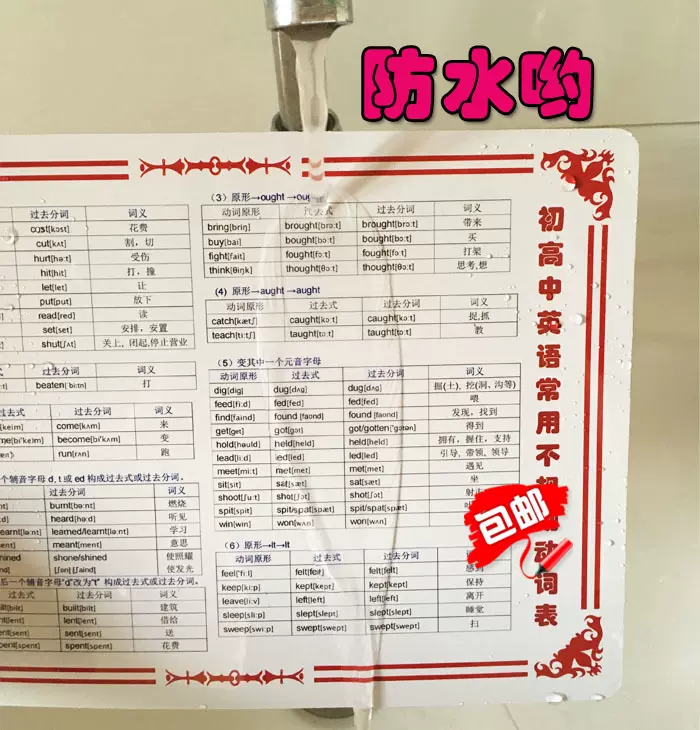 防水哟
过去分词 词义
cost[kɔst] 花费
cut[kʌt] 割，切
hurt[hə:t] 受伤
hit[hit] 打，撞
let[let] 让
put[put] 放下
read[red] 读
set[set] 安排，安置
shut[ʃʌt] 关上, 闭起,停止营业
过去分词 词义
beaten['bi:tn] 打
过去式 过去分词 词义
come[kʌm] 来
become[bi'kʌm] 变
run[rʌn] 跑
辅音字母 d, t或 ed 构成过去式或过去分词。
过去分词 词义
burnt[bə:nt] 燃烧
heard[hə:d] 听见
learned/learnt[lə:nt] 学习
meant[ment] 意思
shone/shined 使照耀
[ʃɔn][ʃaind] 使发光
后一个辅音字母“d”改为“t” 构成过去式或过去分词。
过去分词 词义
built[bilt] 建筑
lent[lent] 借给
sent[sent] 送
spent[spent] 花费
（3）原形→ought →ou
动词原形 过去式 过去分词 词义
bring[briŋ] brought[brɔ:t] brought[brɔ:t] 带来
buy[bai] bought[bɔ:t] bought[bɔ:t] 买
fight[fait] fought[fɔ:t] fought[fɔ:t] 打架
think[θiŋk] thought[θɔ:t] thought[θɔ:t] 思考,想
（4）原形→aught →aught
动词原形 过去式 过去分词 词义
catch[kætʃ] caught[kɔ:t] caught[kɔ:t] 捉,抓
teach[ti:tʃ] taught[tɔ:t] taught[tɔ:t] 教
（5）变其中一个元音字母
动词原形 过去式 过去分词 词义
dig[dig] dug[dʌg] dug[dʌg] 掘(土), 挖(洞、沟等)
feed[fi:d] fed[fed] fed[fed] 喂
find[faind] found [faʊnd] found [faʊnd] 发现，找到
get[get] got[gɔt] got/gotten['gɔtən] 得到
hold[həuld] held[held] held[held] 拥有，握住，支持
lead[li:d] led[led] led[led] 引导, 带领, 领导
meet[mi:t] met[met] met[met] 遇见
sit[sit] sat[sæt] sat[sæt] 坐
shoot[ʃu:t] shot[ʃɔt] shot[ʃɔt] 射
spit[spit] spit/spat[spæt] spit/spat[spæt]
win[win] won[wʌn] won[wʌn]
（6）原形→lt→lt
动词原形 过去式 过去分词
feel['fi:l] felt[felt] felt[felt] 感到
keep[ki:p] kept[kept] kept[kept] 保持
leave[li:v] left[left] left[left] 离开
sleep[sli:p] slept[slept] slept[slept] 睡觉
sweep[swi:p] swept[swept] swept[swept] 扫
初高中英语常用不规 动词表
包邮